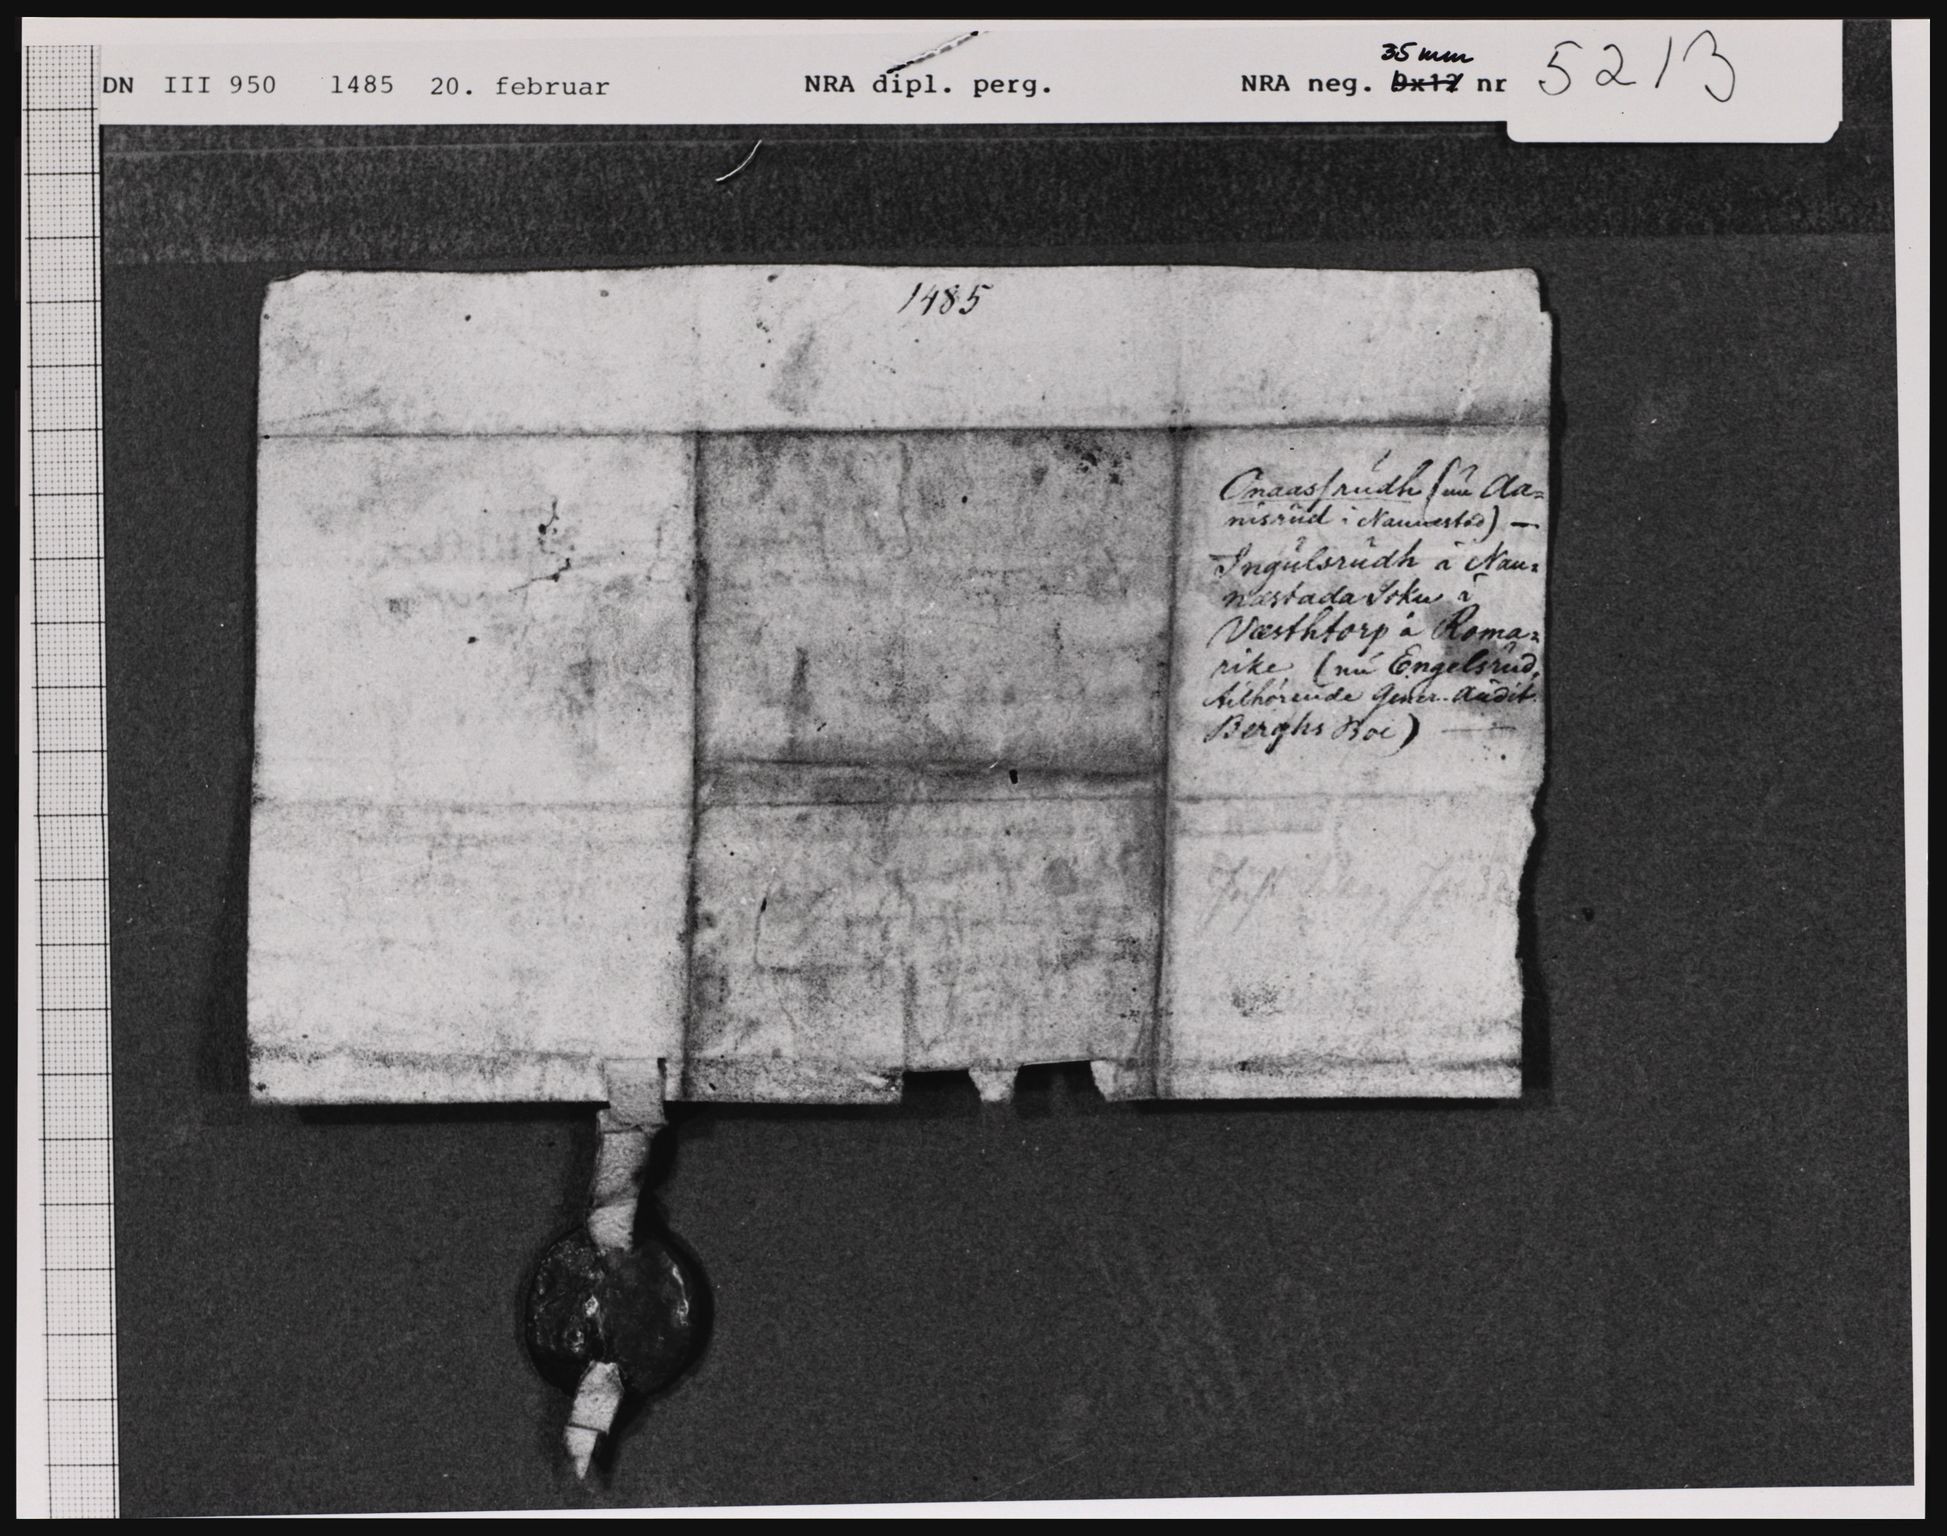 DN III 950 1485 20. februar NRA dipl. perg. NRA neg. 9x12 nr 5213
35 mm
1485
Onaassrúdh (nú Aa=
nisrúd i Naunestad) —
Ingúlsrúdh i Nau=
næstada Soku i
Væsthtorp á Roma=
rike (nú Engelsrúd,
tilhørende Gener. Aúdit.
Berghs Boe) —